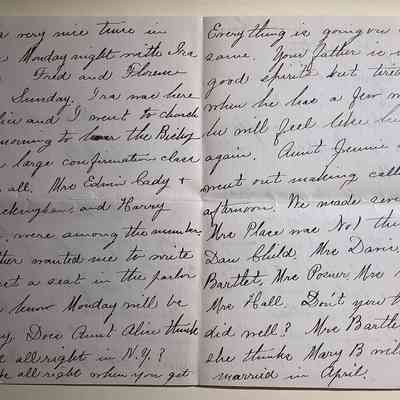 a very nice time in
Monday night with Ira
Fred and Florence
Sunday. Ira was here
and I went to church
morning to hear the Bishop
large confirmation class
all. Mrs Edwin Cady +
and Harry
were among the number.
wanted me to write
a seat in the parlor
know Monday will be
Does Aunt Alice think
all right in N.Y.?
be all right when you get
Everything is going on
same. Your father is in
good spirits but tired
when he has a few
he will feel like
again. Aunt Jennie
went out making calls
afternoon. We made seven
Mrs Place was No 1 then
Dau Child. Mrs Davis,
Bartlet, Mrs Posner, Mrs
Mrs Hall. Don't you th
did well? Mrs Bartlet
else thinks Mary B will
married in April.